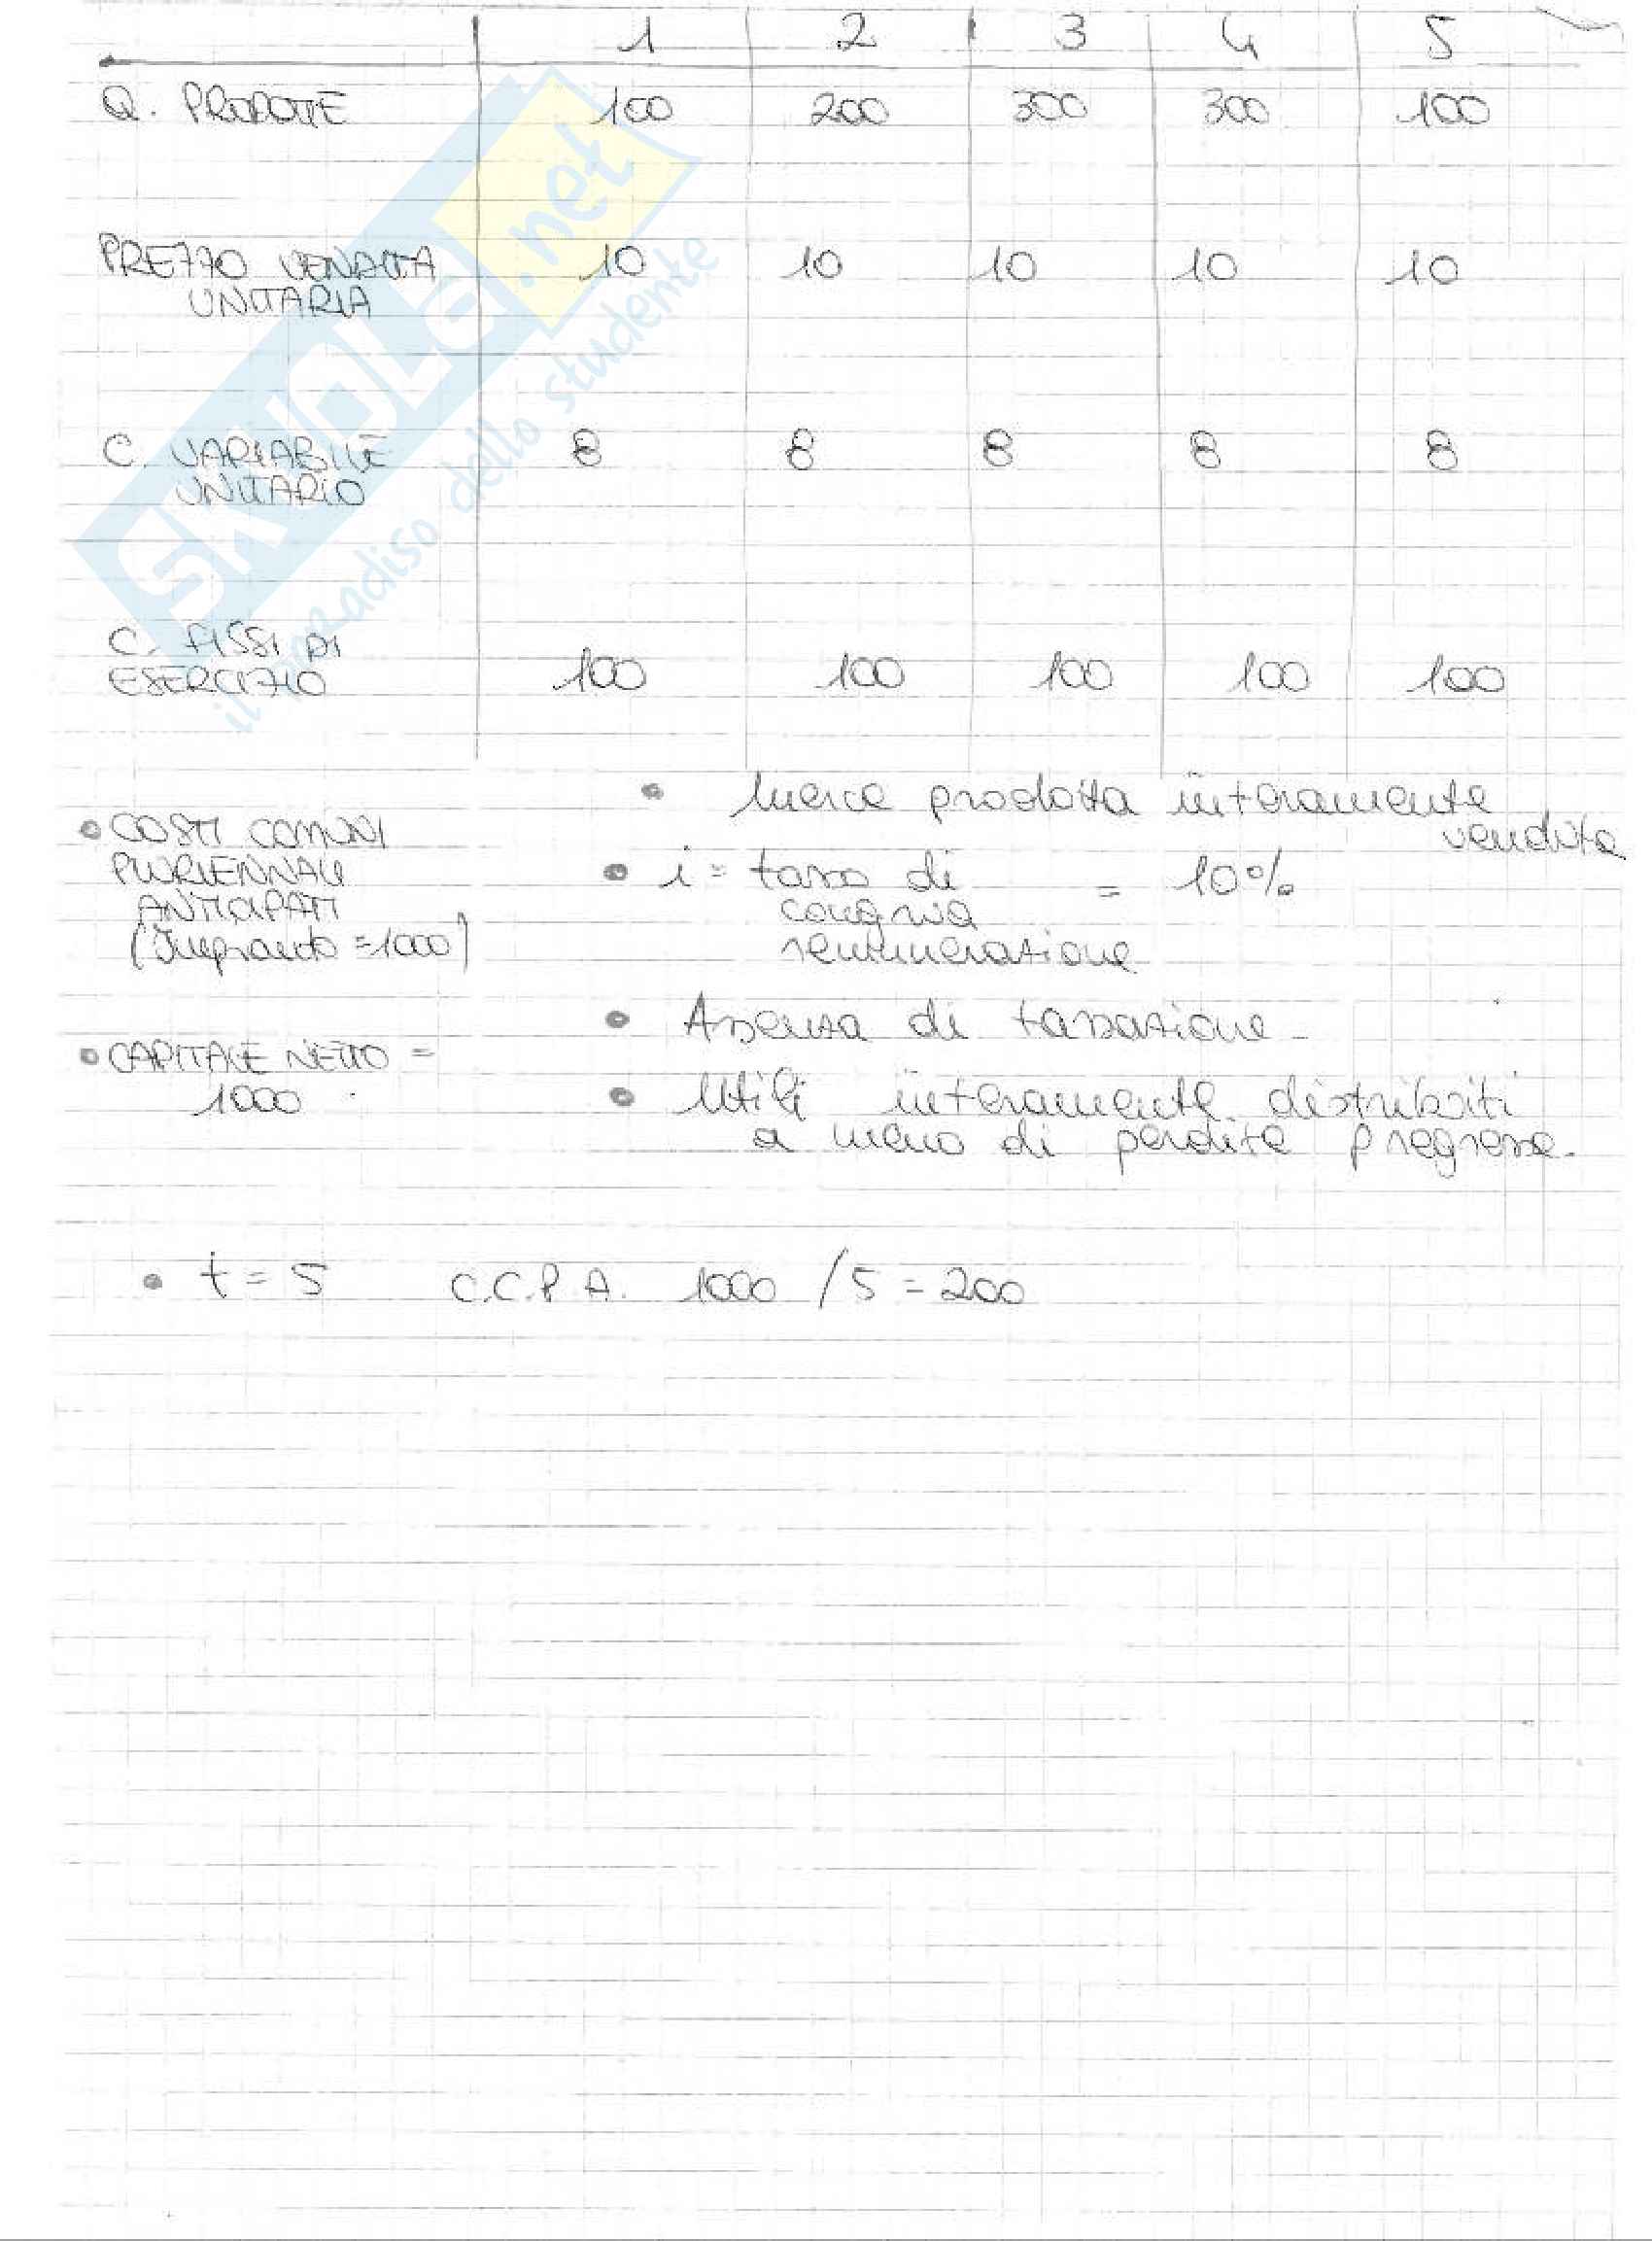 1 2 3 4 5
Q. PRODOTTE 100 200 300 300 100
PREZZO VENDITA 10 10 10 10 10
UNITARIA
C. VARIABILE 8 8 8 8 8
UNITARIO
C. FISSI DI
ESERCIZIO 100 100 100 100 100
• Merce prodotta interamente
venduta
• COSTI COMUNI
PLURIENNALI
ANTICIPATI
(Impianto = 1000)
• i = tasso di = 10%
congrua
remunerazione
• Assenza di tassazione
• CAPITALE NETTO =
1000
• Utili interamente distribuiti
a meno di perdite pregresse.
• t = 5 C.C.P.A. 1000 / 5 = 200
SKUOLA.net
il paradiso dello studente